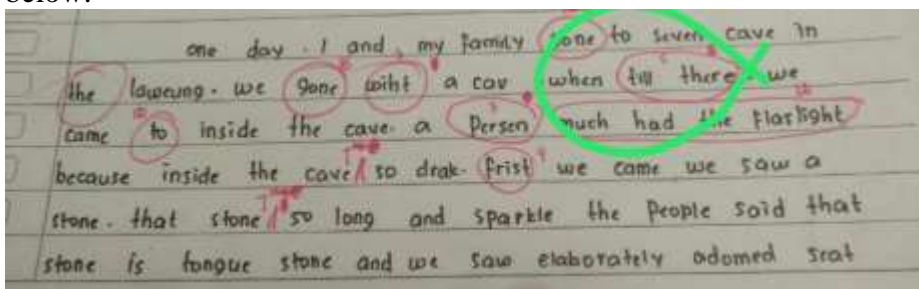 below.
one day . I and my family gone to seven cave in
the laweung. we gone wiht a cav when till there we
came to inside the cave. a Persen much had the flaslight
because inside the cave so drak. frist we came we saw a
stone. that stone so long and sparkle the people said that
stone is tongue stone and we saw elaborately adomed seat